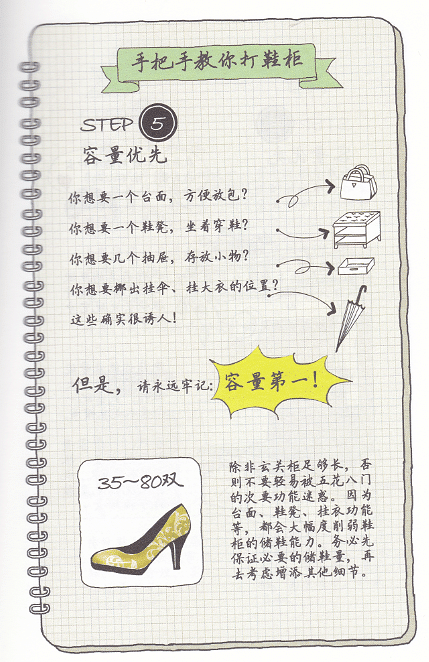 手把手教你打鞋柜
STEP 5
容量优先
你想要一个台面，方便放包？
你想要一个鞋凳，坐着穿鞋？
你想要几个抽屉，存放小物？
你想要挪出挂伞、挂大衣的位置？
这些确实很诱人！
但是，请永远牢记：容量第一！
35～80双
除非玄关柜足够长，否
则不要轻易被五花八门
的次要功能迷惑。因为
台面、鞋凳、挂衣功能
等，都会大幅度削弱鞋
柜的储鞋能力。务必先
保证必要的储鞋量，再
去考虑增添其他细节。